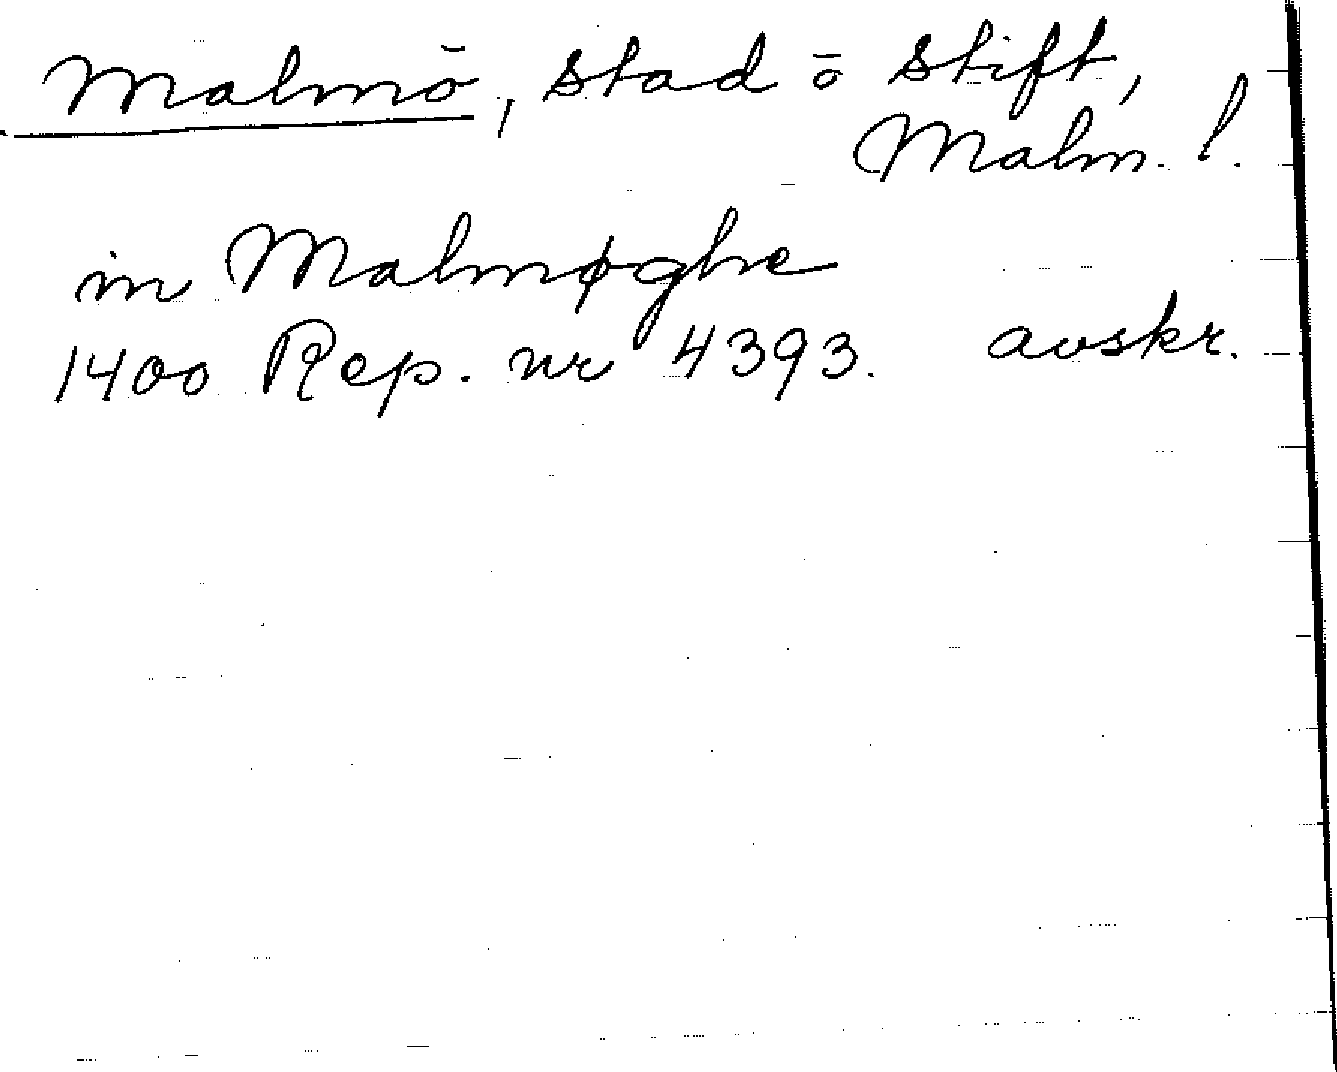 Malmö, stad ō stift,
Malm. l.
in Malmøghe
1400 Rep. nr 4393. avskr.